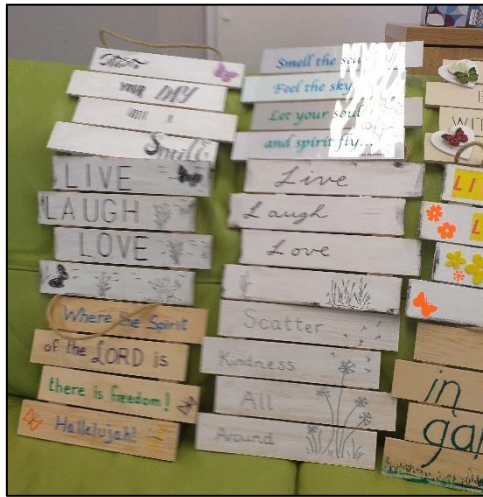 YOUR DAY
Smile
LIVE
LAUGH
LOVE
Where the Spirit
of the LORD is
there is freedom!
Hallelujah!
Smell the sea
Feel the sky
Let your soul
and spirit fly...
Live
Laugh
Love
Scatter
Kindness
All
Around
WIT
LI
L
in
gar